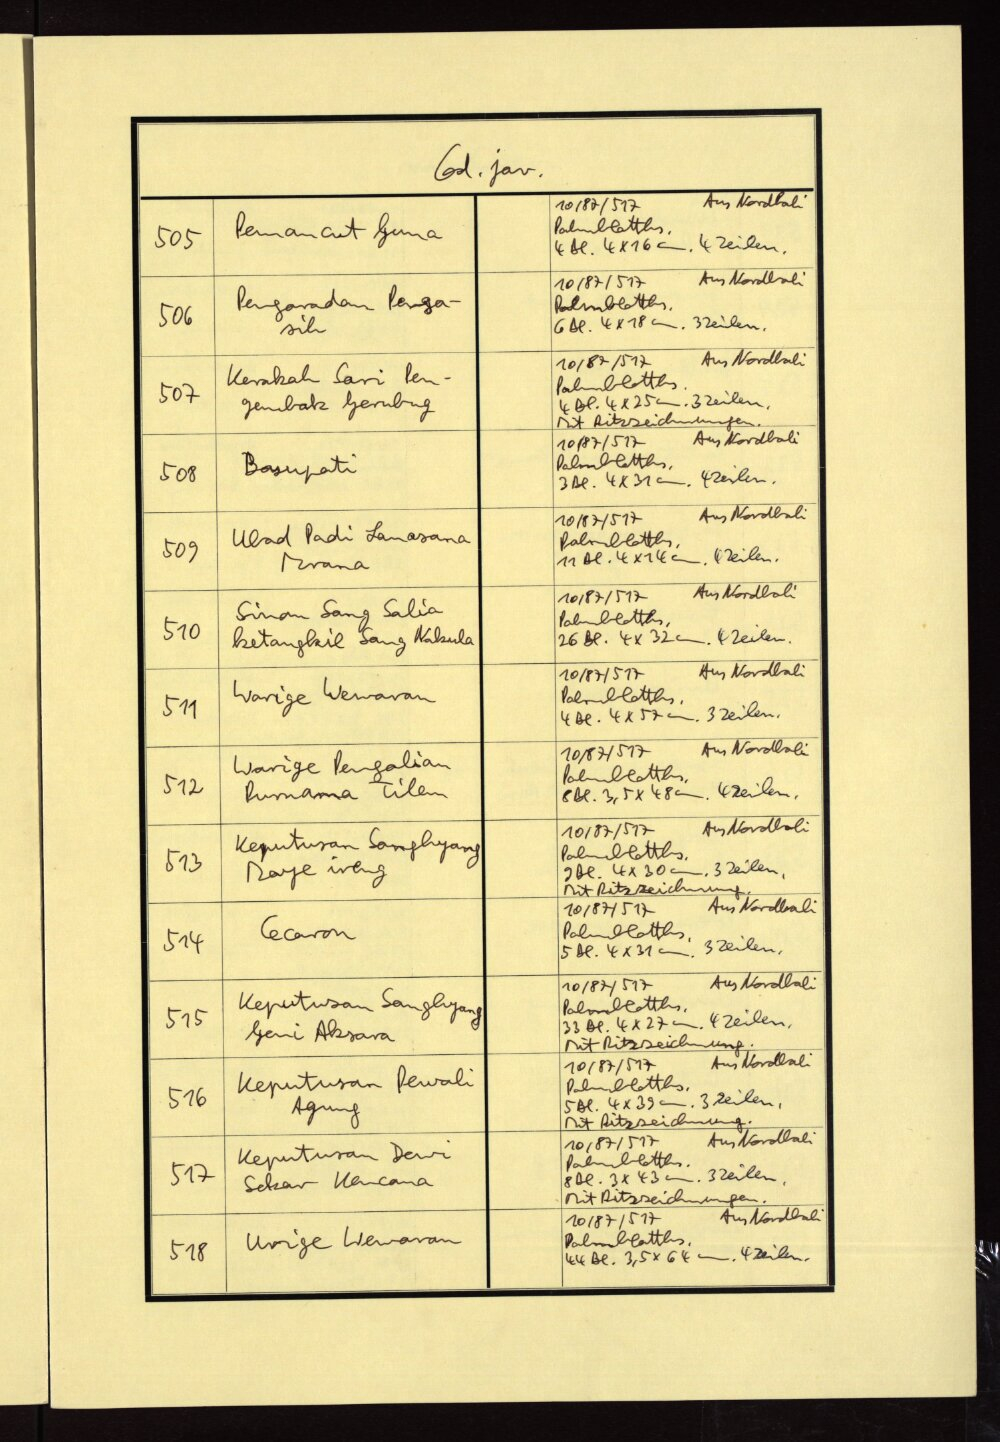 Cod. jav.
505
Pemancut Guna
10/87/517 Aus Nordbali
Palmblatths.
4 Bl. 4 x 16 cm. 4 Zeilen.
506
Pengaradan Penga-
sih
10/87/517 Aus Nordbali
Palmblatths.
6 Bl. 4 x 18 cm. 3 Zeilen.
507
Kerakah Sari Pen-
gembak Gerubug
10/87/517 Aus Nordbali
Palmblatths.
4 Bl. 4 x 25 cm. 3 Zeilen.
Mit Ritzzeichnungen.
508
Basupati
10/87/517 Aus Nordbali
Palmblatths.
3 Bl. 4 x 31 cm. 4 Zeilen.
509
Ubad Padi Lanasana
Mrana
10/87/517 Aus Nordbali
Palmblatths.
11 Bl. 4 x 14 cm. 4 Zeilen.
510
Sinom Sang Salia
ketangkil Sang Nakula
10/87/517 Aus Nordbali
Palmblatths.
26 Bl. 4 x 32 cm. 4 Zeilen.
511
Warige Wewaran
10/87/517 Aus Nordbali
Palmblatths.
4 Bl. 4 x 57 cm. 3 Zeilen.
512
Warige Pengalian
Purnama Tilem
10/87/517 Aus Nordbali
Palmblatths.
8 Bl. 3,5 x 48 cm. 4 Zeilen.
513
Keputusan Sanghyang
Maye ireng
10/87/517 Aus Nordbali
Palmblatths.
9 Bl. 4 x 30 cm. 3 Zeilen.
Mit Ritzzeichnung.
514
Cecaron
10/87/517 Aus Nordbali
Palmblatths.
5 Bl. 4 x 31 cm. 3 Zeilen.
515
Keputusan Sanghyang
Geni Aksara
10/87/517 Aus Nordbali
Palmblatths.
33 Bl. 4 x 27 cm. 4 Zeilen.
Mit Ritzzeichnung.
516
Keputusan Pewali
Agung
10/87/517 Aus Nordbali
Palmblatths.
5 Bl. 4 x 39 cm. 3 Zeilen.
Mit Ritzzeichnung.
517
Keputusan Dewi
Sekar Kencana
10/87/517 Aus Nordbali
Palmblatths.
8 Bl. 3 x 43 cm. 3 Zeilen.
Mit Ritzzeichnungen.
518
Urige Wewaran
10/87/517 Aus Nordbali
Palmblatths.
44 Bl. 3,5 x 64 cm. 4 Zeilen.